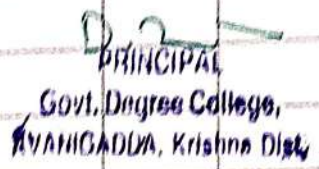 PRINCIPAL
Govt. Degree College,
AVANIGADDA, Krishna Dist,